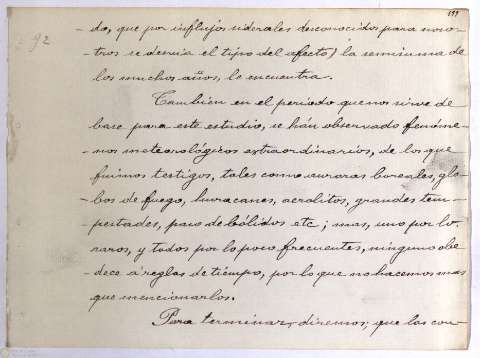 199
92
do, que por influjos siderales desconocidos para noso-
-tros se desvia el tipo del afecto) la semisuma de
los muchos años, lo encuentra.
Tambien en el periodo que nos sirve de
base para este estudio, se hán observado fenóme-
-nos meteorológicos extraordinarios, de los que
fuimos testigos, tales como auroras boreales, glo-
-bos de fuego, huracanes, aerolitos, grandes tem-
-pestades, paso de bólidos etc; mas, uno por lo
raros, y todos por lo poco frecuentes, ninguno obe-
-dece á reglas de tiempo, por lo que no hacemos mas
que mencionarlos.
Para terminar, diremos; que las con-